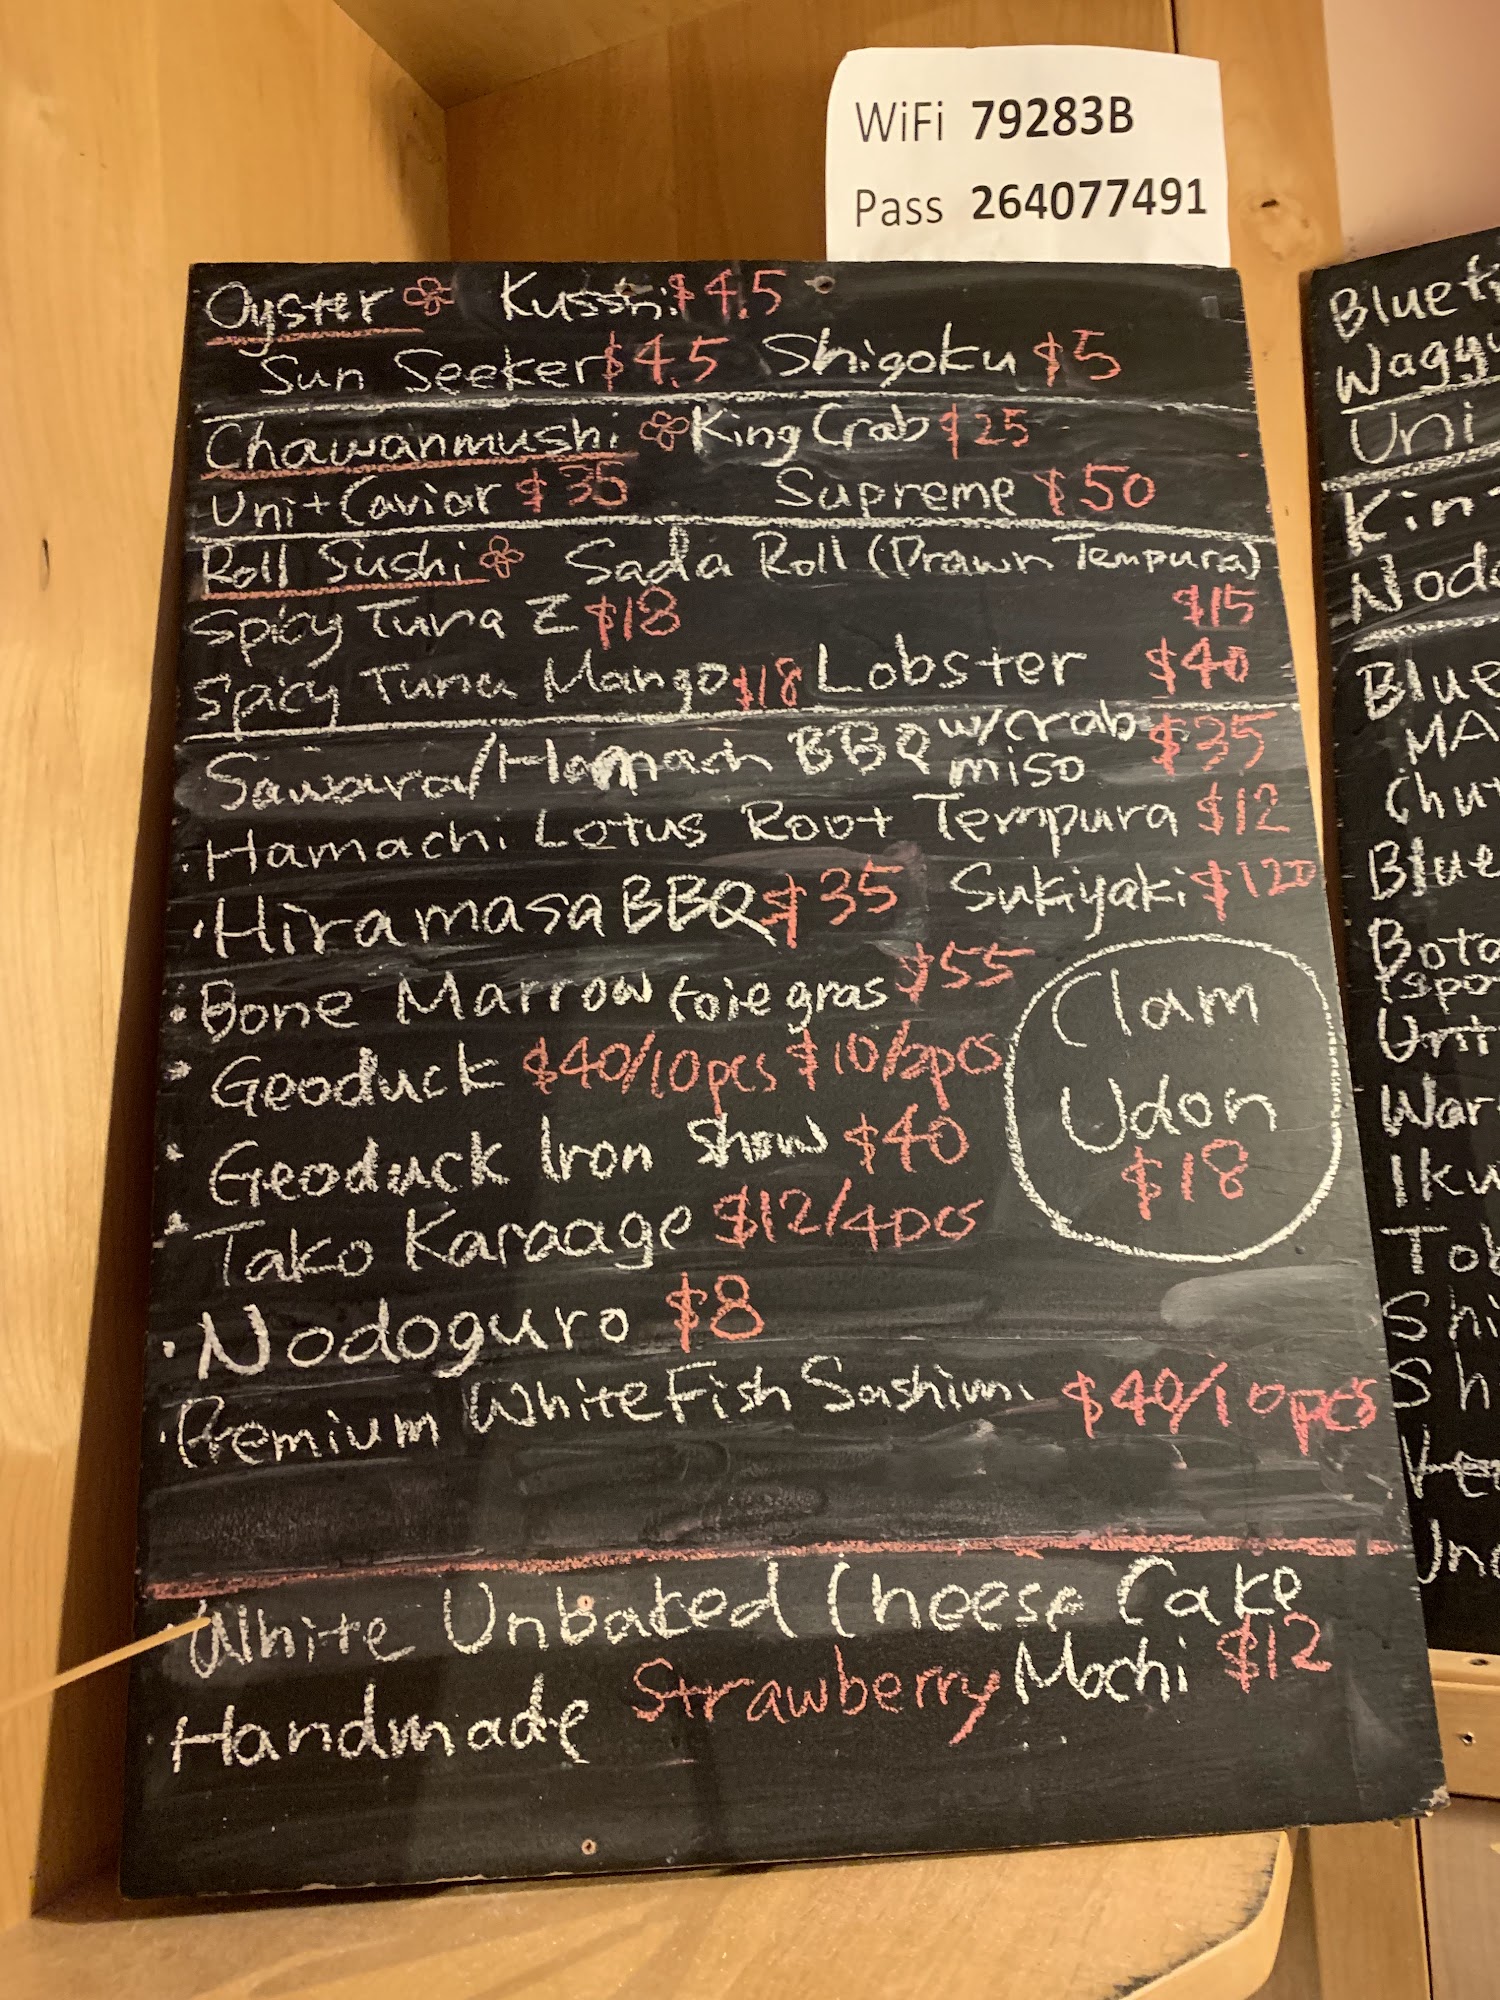 WiFi 79283B
Pass 264077491
Oyster Kusshi $4.5
Sun Seeker $4.5 Shigoku $5
Chawanmushi King Crab $25
Uni+Caviar $35 Supreme $50
Roll Sushi Sada Roll (Prawn Tempura)
Spicy Tuna Z $18 $15
Spicy Tuna Mango $18 Lobster $40
Sawara/Hamachi BBQ w/crab miso $35
·Hamachi Lotus Root Tempura $12
·Hiramasa BBQ $35 Sukiyaki $120
·Bone Marrow foie gras $55
·Geoduck $40/10pcs $10/2pcs
·Geoduck Iron Show $40
·Tako Karaage $12/4pcs
·Nodoguro $8
·Premium White Fish Sashimi $40/10pcs
Clam
Udon
$18
·White Unbaked Cheese Cake
Handmade Strawberry Mochi $12
Bluef
Wagyu
Uni
Kin
Nodo
Blue
MA
Chu
Blue
Bota
(spo
Uni
War
Iku
Tob
Shi
Sh